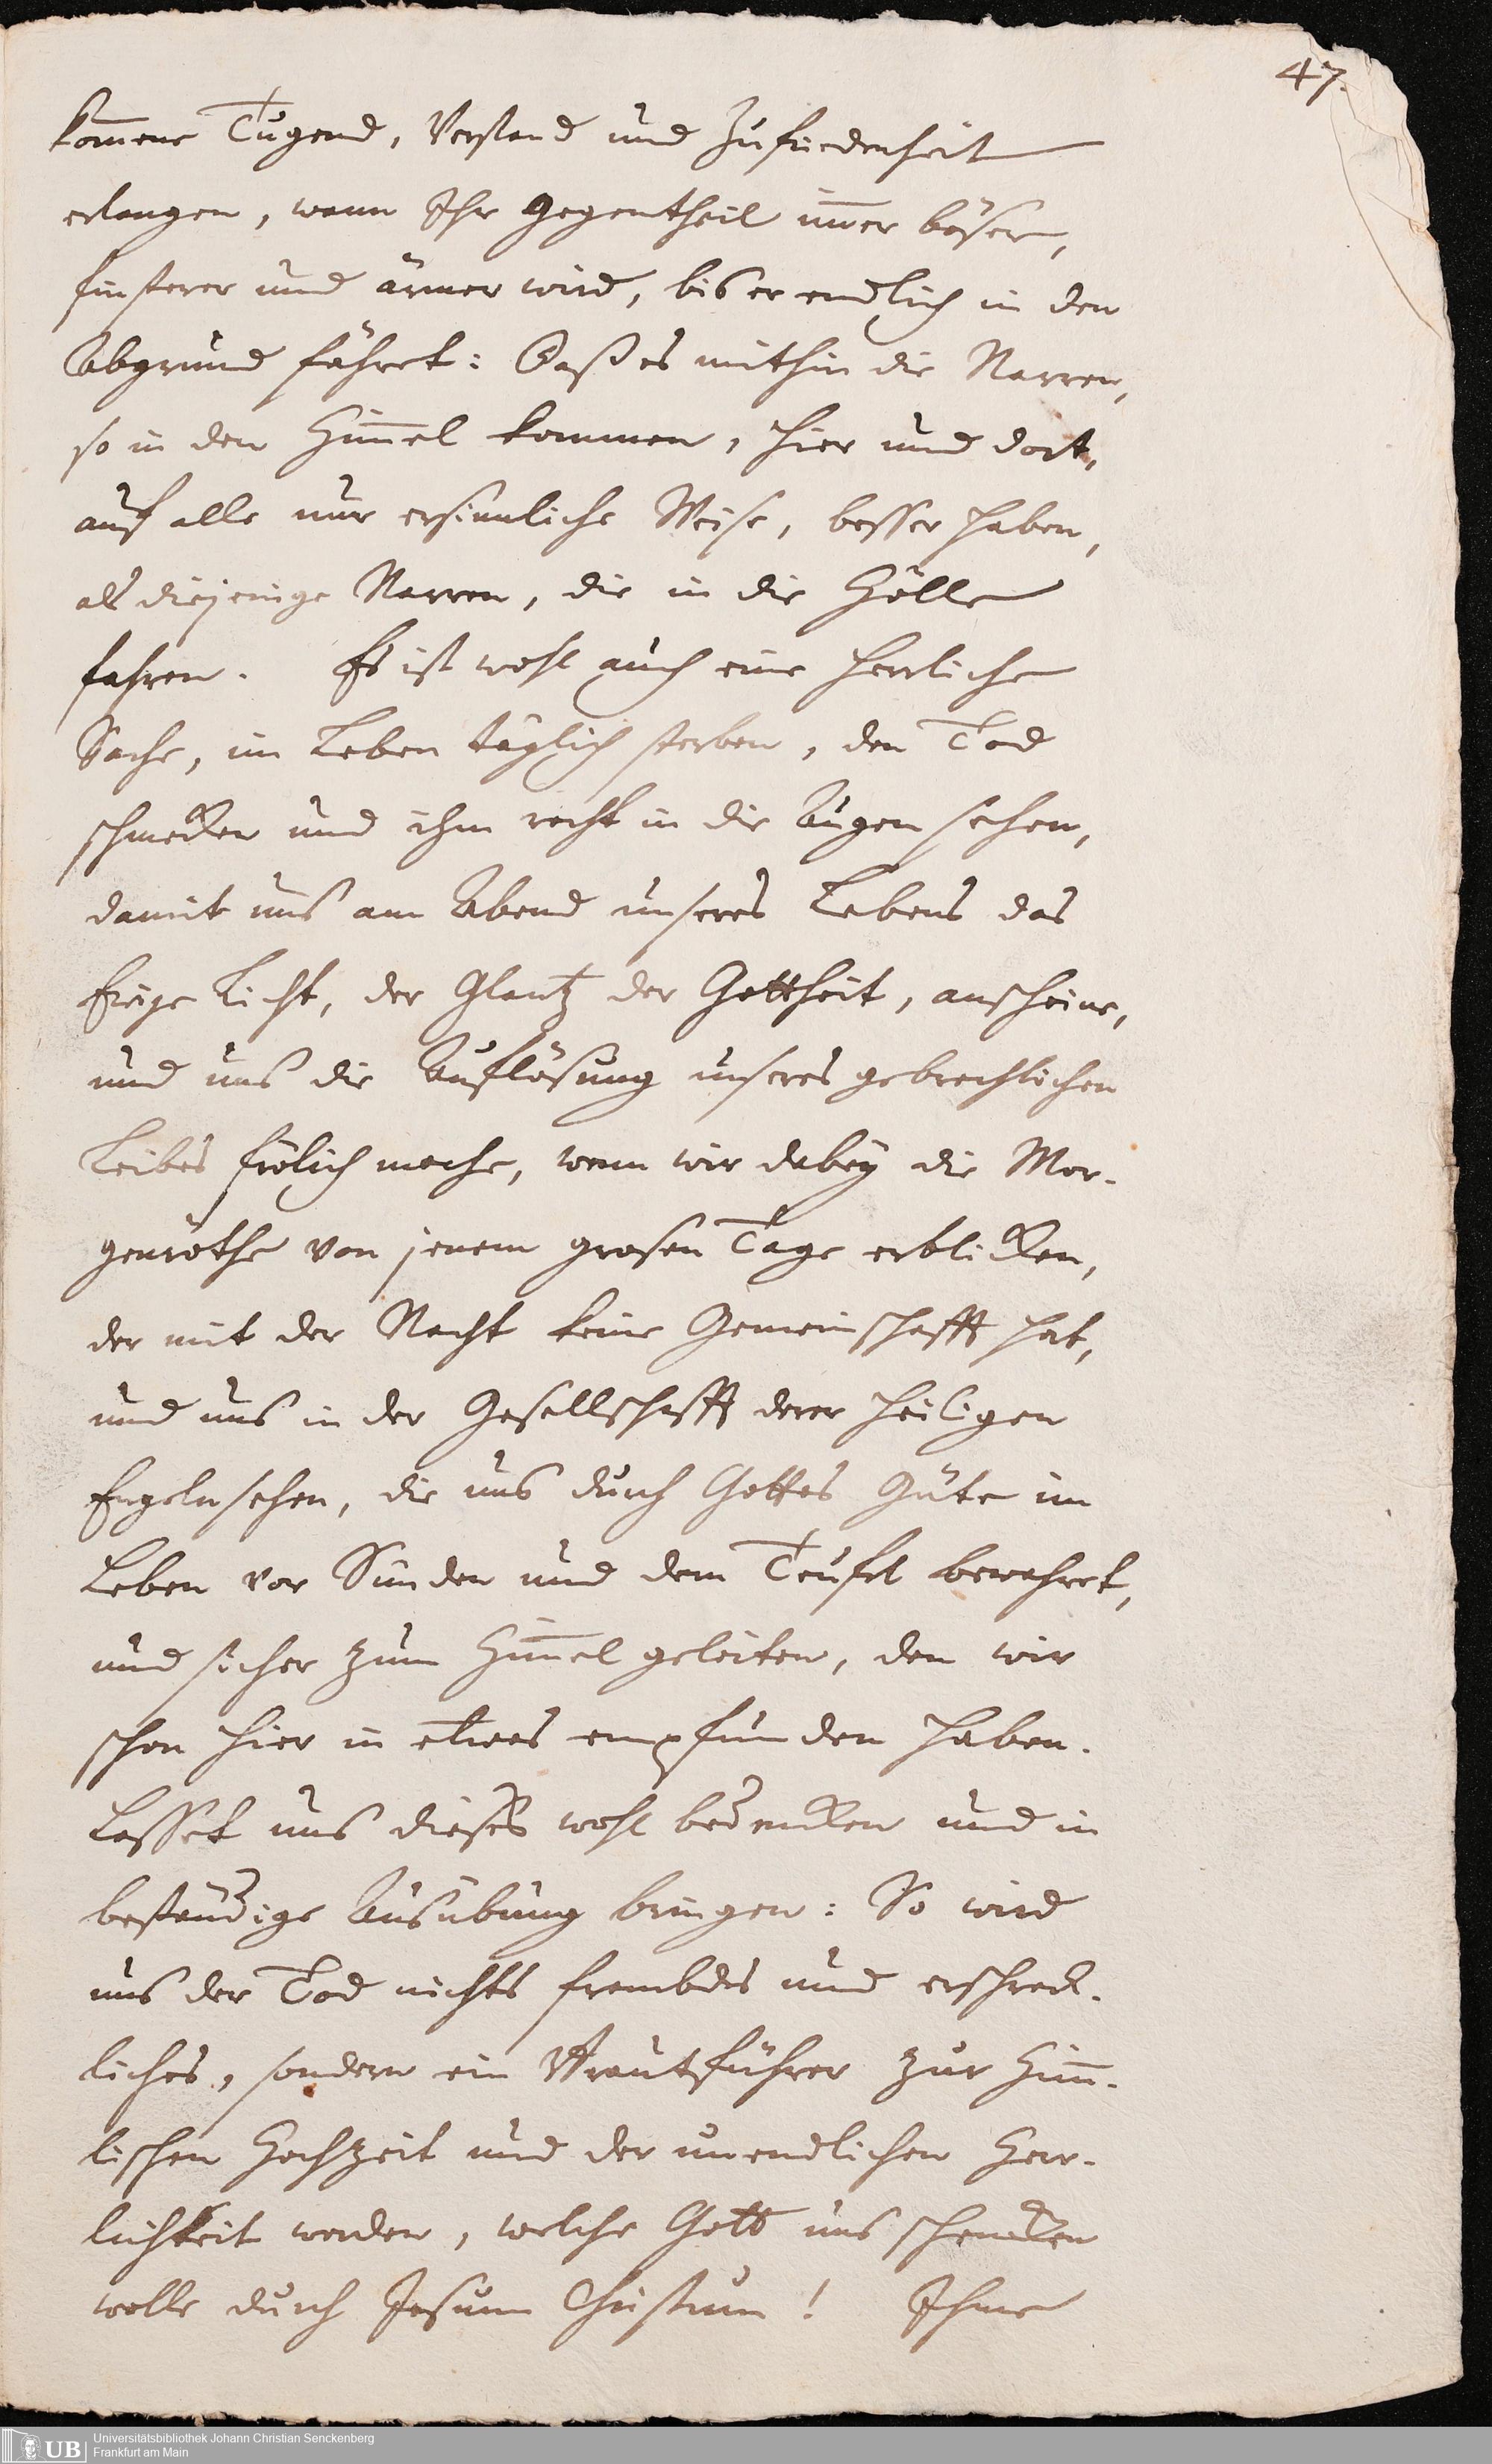 47.
kom̄ene Tugend, Verstand und Zufriedenheit
erlangen, wann Ihr Gegentheil im̄er böser,
finsterer und ärmer wird, bis er endlich in den
Abgrund fähret: Daß es mithin die Narren,
so in den Him̄el kommen, hier und dort,
auf alle nur ersinnliche Weise, besser haben,
als diejenige Narren, die in die Hölle
fahren. Es ist wohl auch eine herrliche
Sache, im Leben täglich sterben, den Tod
schmecken und ihm recht in die Augen sehen,
damit uns am Abend unseres Lebens das
Ewige Licht, der Glantz der Gottheit, anscheine,
und uns die Auflösung unseres gebrechlichen
Leibes frölich mache, wenn wir dabey die Mor-
genröthe von jenem grosen Tage erblicken,
der mit der Nacht keine Gemeinschafft hat,
und uns in der Gesellschafft derer heiligen
Engeln sehen, die uns durch Gottes Güte im
Leben vor Sünden und dem Teufel bewahret,
und sicher zum Him̄el geleiten, den wir
schon hier in etwas empfunden haben.
Lasset uns dieses wohl bedencken und in
beständige Ausübung bringen: So wird
uns der Tod nichts frembdes und erschreck-
liches, sondern ein Brautführer zur Him̄-
lischen Hochzeit und der unendlichen Herr-
lichkeit werden, welche Gott uns schencken
wolle durch Jesum Christum! Ihme
UB
Universitätsbibliothek Johann Christian Senckenberg
Frankfurt am Main